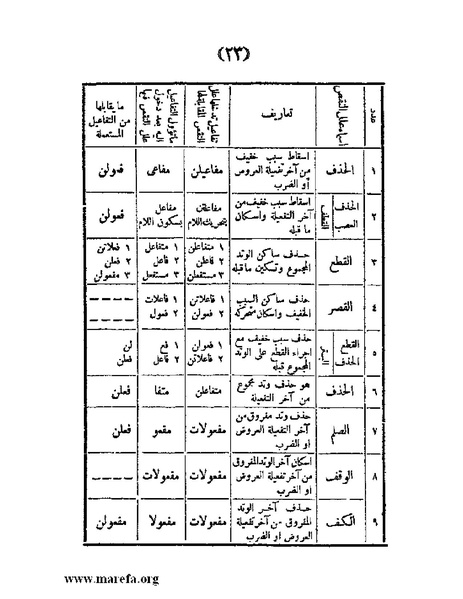 (٢٣)
عدد
اسماء علل النقص
تعاريف
تفاعيل تدخلها علل النقص
ما تؤول التفاعيل اليه بعد دخول علل النقص فيها
ما يقابلها
من التفاعيل
المستعملة
١
الحذف
اسقاط سبب خفيف
من آخر تفعيلة العروض
أو الضرب
مفاعيلن
مفاعى
فعولن
٢
الحذف
العصب
القطف
اسقاط سبب خفيف من
آخر التفعيلة واسكان
ما قبله
مفاعلتن
بتحريك اللام
مفاعل
بسكون اللام
فعولن
٣
القطع
حذف ساكن الوتد
المجموع وتسكين ماقبله
١ متفاعلن
٢ فاعلن
٣ مستفعلن
١ متفاعل
٢ فاعل
٣ مستفعل
١ فعلاتن
٢ فعلن
٣ مفعولن
٤
القصر
حذف ساكن السبب
الخفيف واسكان متحركه
١ فاعلاتن
٢ فعولن
١ فاعلات
٢ فعول
----
----
٥
القطع
الحذف
البتر
حذف سبب خفيف مع
اجراء القطع على الوتد
المجموع قبله
١ فعولن
٢ فاعلاتن
١ فع
٢ فاعل
لن
فعلن
٦
الحذف
هو حذف وتد مجموع
من آخر التفعيلة
متفاعلن
متفا
فعلن
٧
الصلم
حذف وتد مفروق من
آخر التفعيلة العروض
او الضرب
مفعولات
مفعو
فعلن
٨
الوقف
اسكان آخر الوتد المفروق
من آخر تفعيلة العروض
او الضرب
مفعولات
مفعولات
----
٩
الكف
حذف آخر الوتد
المفروق من آخر تفعيلة
العروض او الضرب
مفعولات
مفعولا
مفعولن
www.marefa.org